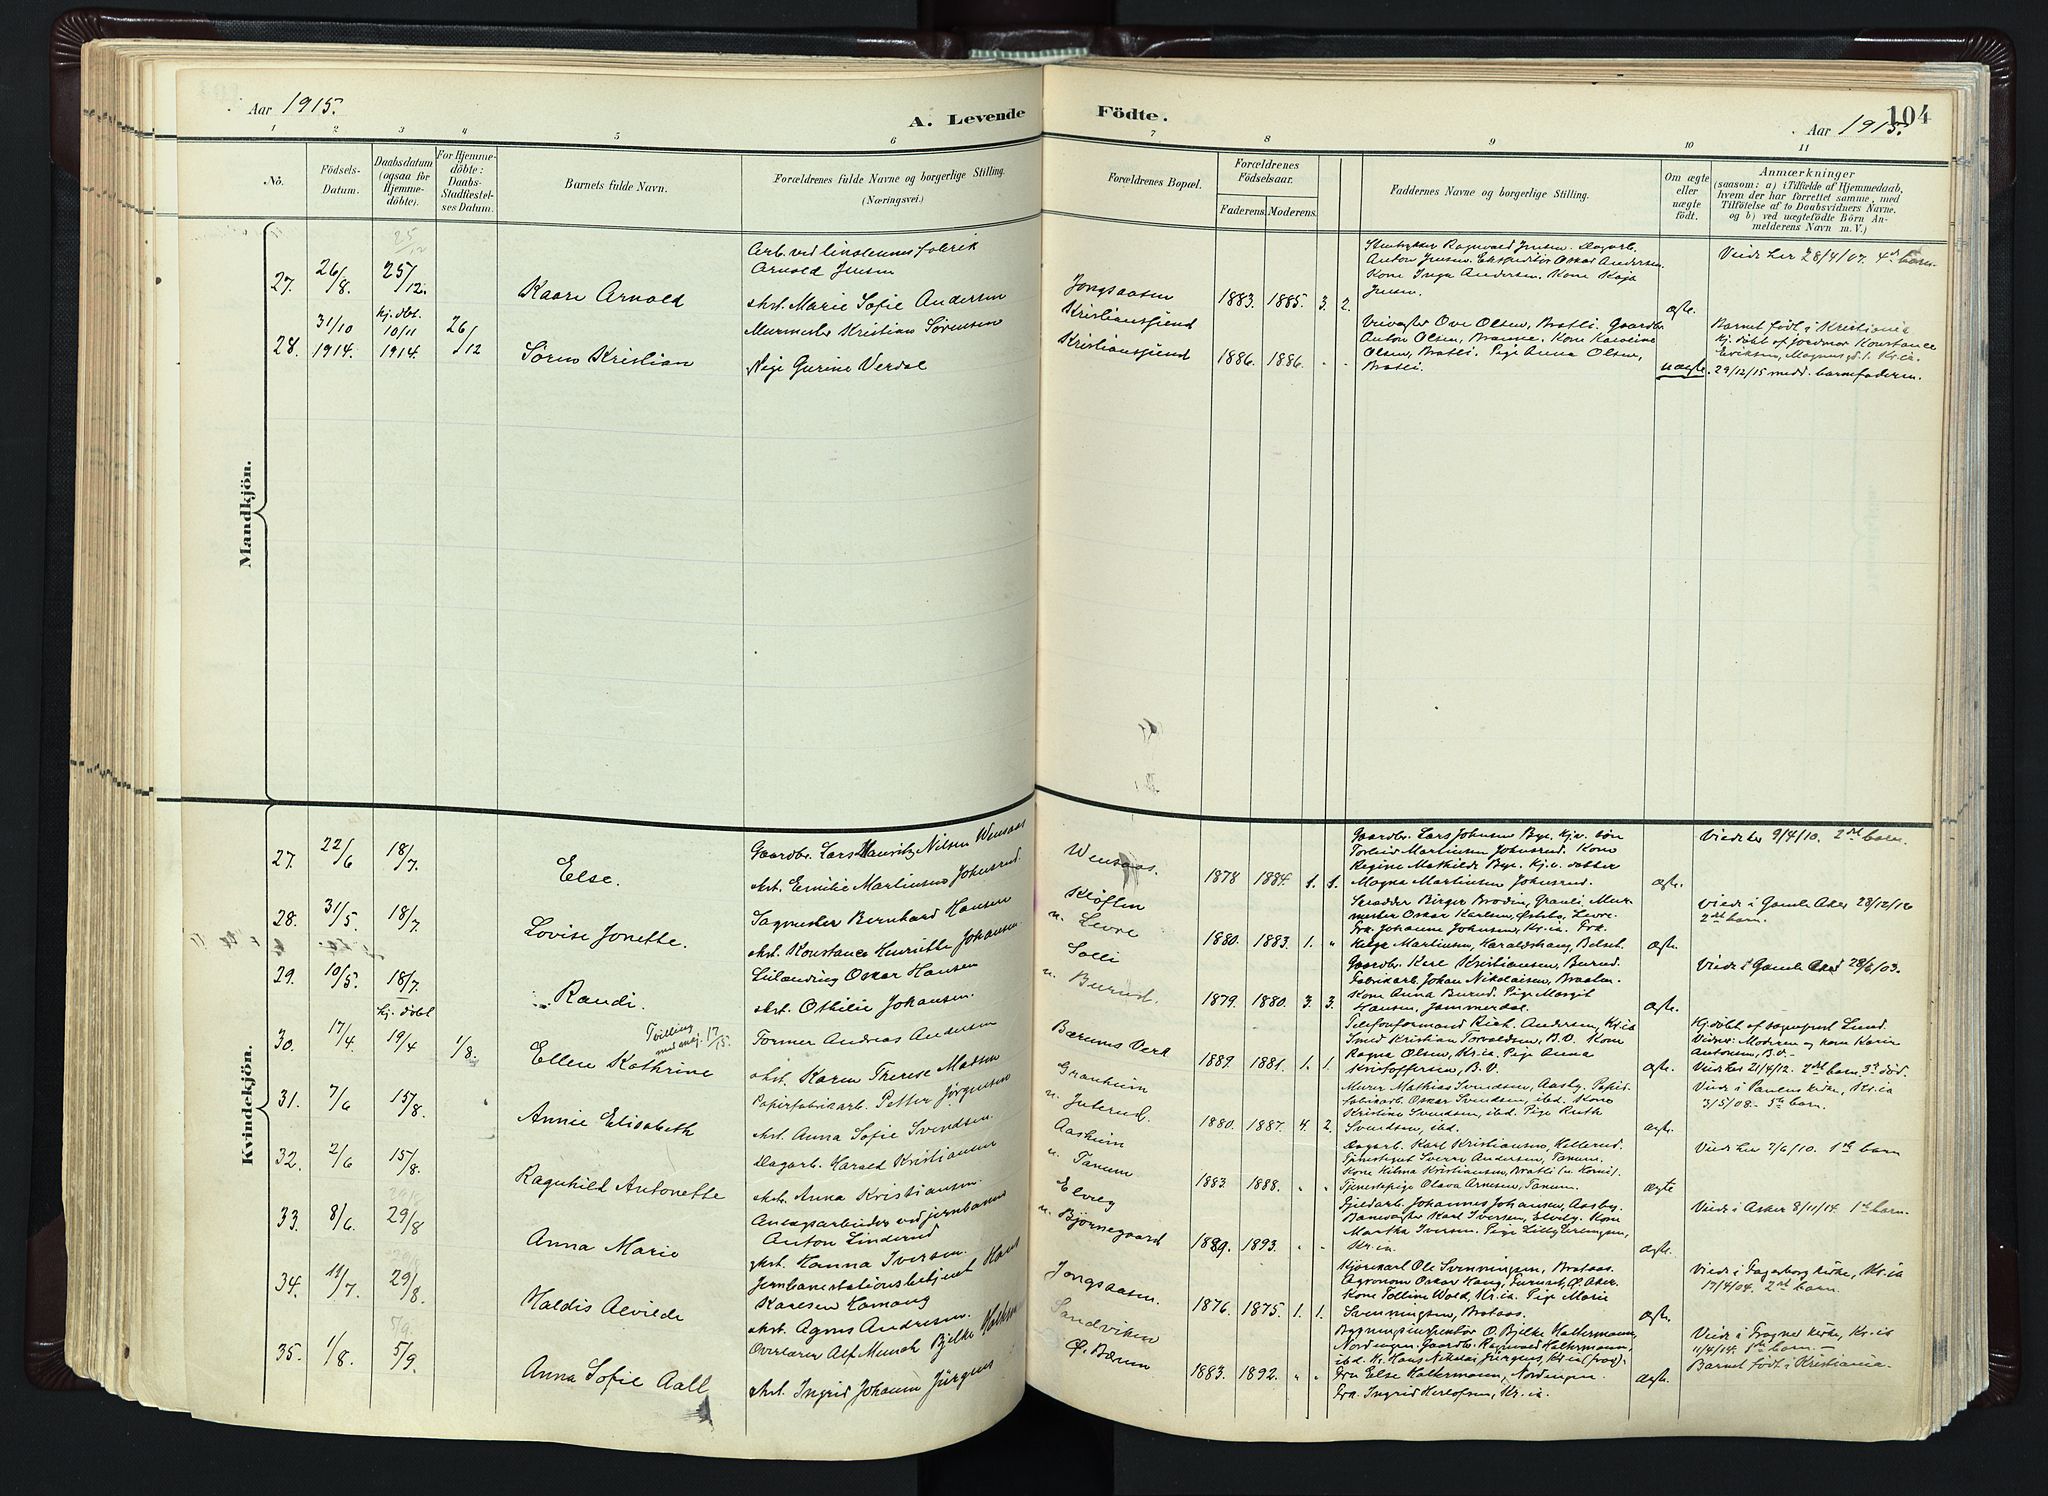 Aar 1915.
A. Levende
Födte.
104
Aar 1915.
1 2 3 4 5 6 7 8 9 10 11
Nô.
Födsels-
Datum.
Daabsdatum
(ogsaa for
Hjemme-
döbte).
For Hjemme-
döbte:
Daabs-
Stadfæstel-
ses Datum.
Barnets fulde Navn.
Forældrenes fulde Navne og borgerlige Stilling.
(Næringsvei.)
Forældrenes Bopæl.
Forældrenes
Födselsaar.
Faderens. Moderens.
Faddernes Navne og borgerlige Stilling.
Om ægte
eller
uægte
födt.
Anmærkninger
(saasom: a) i Tilfælde af Hjemmedaab,
hvem der har forrettet samme, med
Tilföielse af to Daabsvidners Navne.
og b) ved uægtefödte Börn An-
melderens Navn m. V.)
Mandkjön.
27. 26/8. 25/12.
Kaare Arnold
Arb. ved linoleumsfabrik
Arnold Jensen
Hst. Marie Sofie Andersen
Jongsaasen
1883. 1885. 3. 2.
Ragnvald Jensen. Dagarb.
Anton Jensen. Ekspeditör Oskar Andersen.
Kone Inga Andersen, Kone Kaja
Jensen.
ægte.
Viede her 28/4/07. 4de barn.
28. 31/10 1914. hj. döbt. 10/11 1914. 26/12
Sörens Kristian
Murmester Kristian Sörensen
Pige Gurine Verdal
Kristiansfjend
Kristiansfjend
1886. 1886. - -
Ove Olsen, Bratli. Gaardbr.
Anton Olsen, Kone Karoline
Olsen, Bratli. Pige Anna Olsen,
Bratli.
uægte.
Barnet födt i Kristiania
hj. döbt af jordmor Konstance
Eriksen, Kr.ia.
29/12/15 medd. barnefaderen.
Kvindekjön.
27. 22/6 18/7.
Else.
Gaardbr. Lars Hauritz Nilsen Wensaas
Hst. Emilie Martinsen Johnsrud.
Wensaas.
1878 1884. 1. 1.
Gaardbr. Lars Johnsen Bye. Hj.v. sön
Torleid Martinsen Johnsrud. Kone
Regine Mathilde Bye. Hj.v. datter
Magna Martinsen Johnsrud.
ægte.
Viede her 9/4/10. 2det barn.
28. 31/5. 18/7.
Lovise Jonette.
Sagmester Bernhard Hansen
Hst. Konstance Henriette Johansen
Klöften
u. Levre
1880. 1883. 1. "
Skrædder Birger Brodin, Grauli. Mur-
mester Oskar Karlsen, Østeby, Levre.
Frk. Johanne Johnsen, Kr.ia. Frk.
Helga Martinsen, Haraldshaug, Belset.
ægte.
Viede i Gamle Aker 28/12/12
2det barn.
29. 10/5. 18/7.
Randi.
Oskar Hansen
Hst. Othilie Johansen.
Solli
u. Burud.
1879. 1880. 3. 3.
Gaardbr. Karl Kristiansen, Burud.
Fabrikarb. Johan Nikolaisen, Braaten.
Kone Anna Burud. Pige Margit
Hansen, Jammerdal.
ægte.
Viede i Gamle Aker 28/6/03.
30. 17/4. hj. döbt 19/4 1/8.
Ellen Kathrine
Tvilling
Former Andreas Andersen
Hst. Karen Therese Madsen
Bærums Verk
1889. 1881. 1. 1.
Telefonformand Rich. Andersen, Kr.ia
Smed Kristian Torvaldsen, B.V. Kone
Ragna Olsen, Kr.ia. Pige Anna
Kristoffersen, B.V.
ægte.
Hj. döbt af sogneprest Lund.
Vidner: Moderen og kone Karen
Antonsen, B.V. -
Viede her 21/4/12. 2det barn. 3die död.
31. 7/6 15/8.
Annie Elisabeth
Papirfabrikarb. Petter Jörgensen
Hst. Anna Sofie Svendsen.
Granheim
u. Juterud.
1880. 1887. 4. 2.
Murer Mathias Svendsen, Aasby. Papir-
fabrikarb. Oskar Svendsen, ibd. Kone
Kristine Svendsen, ibd. Pige Ruth
Svendsen, ibd.
ægte.
Viede i Paulus kirke, Kr.ia
3/5/08. - 5te barn.
32. 2/6 15/8.
Ragnhild Antonette
Dagarb. Harald Kristiansen
Hst. Anna Kristiansen.
Aasheim
u. Tanum
1883. 1888. " "
Dagarb. Karl Kristiansen, Hellerud.
Tjenestegut Sverre Andersen, Tanum.
Kone Hilma Kristiansen, Bratli (u. Horni).
Tjenestepige Olava Arnesen, Tanum.
ægte
Viede her 7/6/10. 1ste barn
33. 8/6. 29/8
Anna Marie
Anlægsarbeider ved jernbanen
Anton Linderud
Hst. Hanna Iversen.
Elveg
u. Bjørnegaard
1889. 1893. " "
Johannes Johansen, Aasby.
Banevogter Karl Iversen, Elveby. Kone
Martha Iversen. Pige Lilly Eringsen,
Kr.ia.
ægte.
Viede i Asker 8/11/14. 1ste barn.
34. 11/7. 29/8.
Haldis Alvilde
Jernbanestationsbetjent Hans
Karlsen Hornang
Hst. Agnes Andresen.
Jongsaasen.
1876. 1875. 1. 1.
Kjörekarl Ole Svenningsen, Brataas.
Agronom Oskar Haug, Furuset, Ø. Aker.
Kone Polline Wold, Kr.ia. Pige Marie
Svenningsen, Brataas.
ægte.
Viede i Fagerborg kirke, Kr.ia
17/4/04. 2det barn.
35. 1/8. 5/9.
Anna Sofie Aall
Overlærer Alf Munch Bjelke Holtermann
Hst. Ingrid Johanne Jürgens
Sandviken
Ø. Bærum
1883. 1892. " "
Bygningsinspektör O. Bjelke Holtermann,
Nordingen. Gaardbr. Ragnvald Holtermann,
ibd. Hr. Hans Nikolai Jürgens, Kr.ia (prog).
Fru Else Holtermann, Nordingen.
Frk. Ingrid Herlofsen, Kr.ia.
ægte.
Viede i Frogner kirke, Kr.ia
11/4/14. 1ste barn. -
Barnet födt i Kristiania.